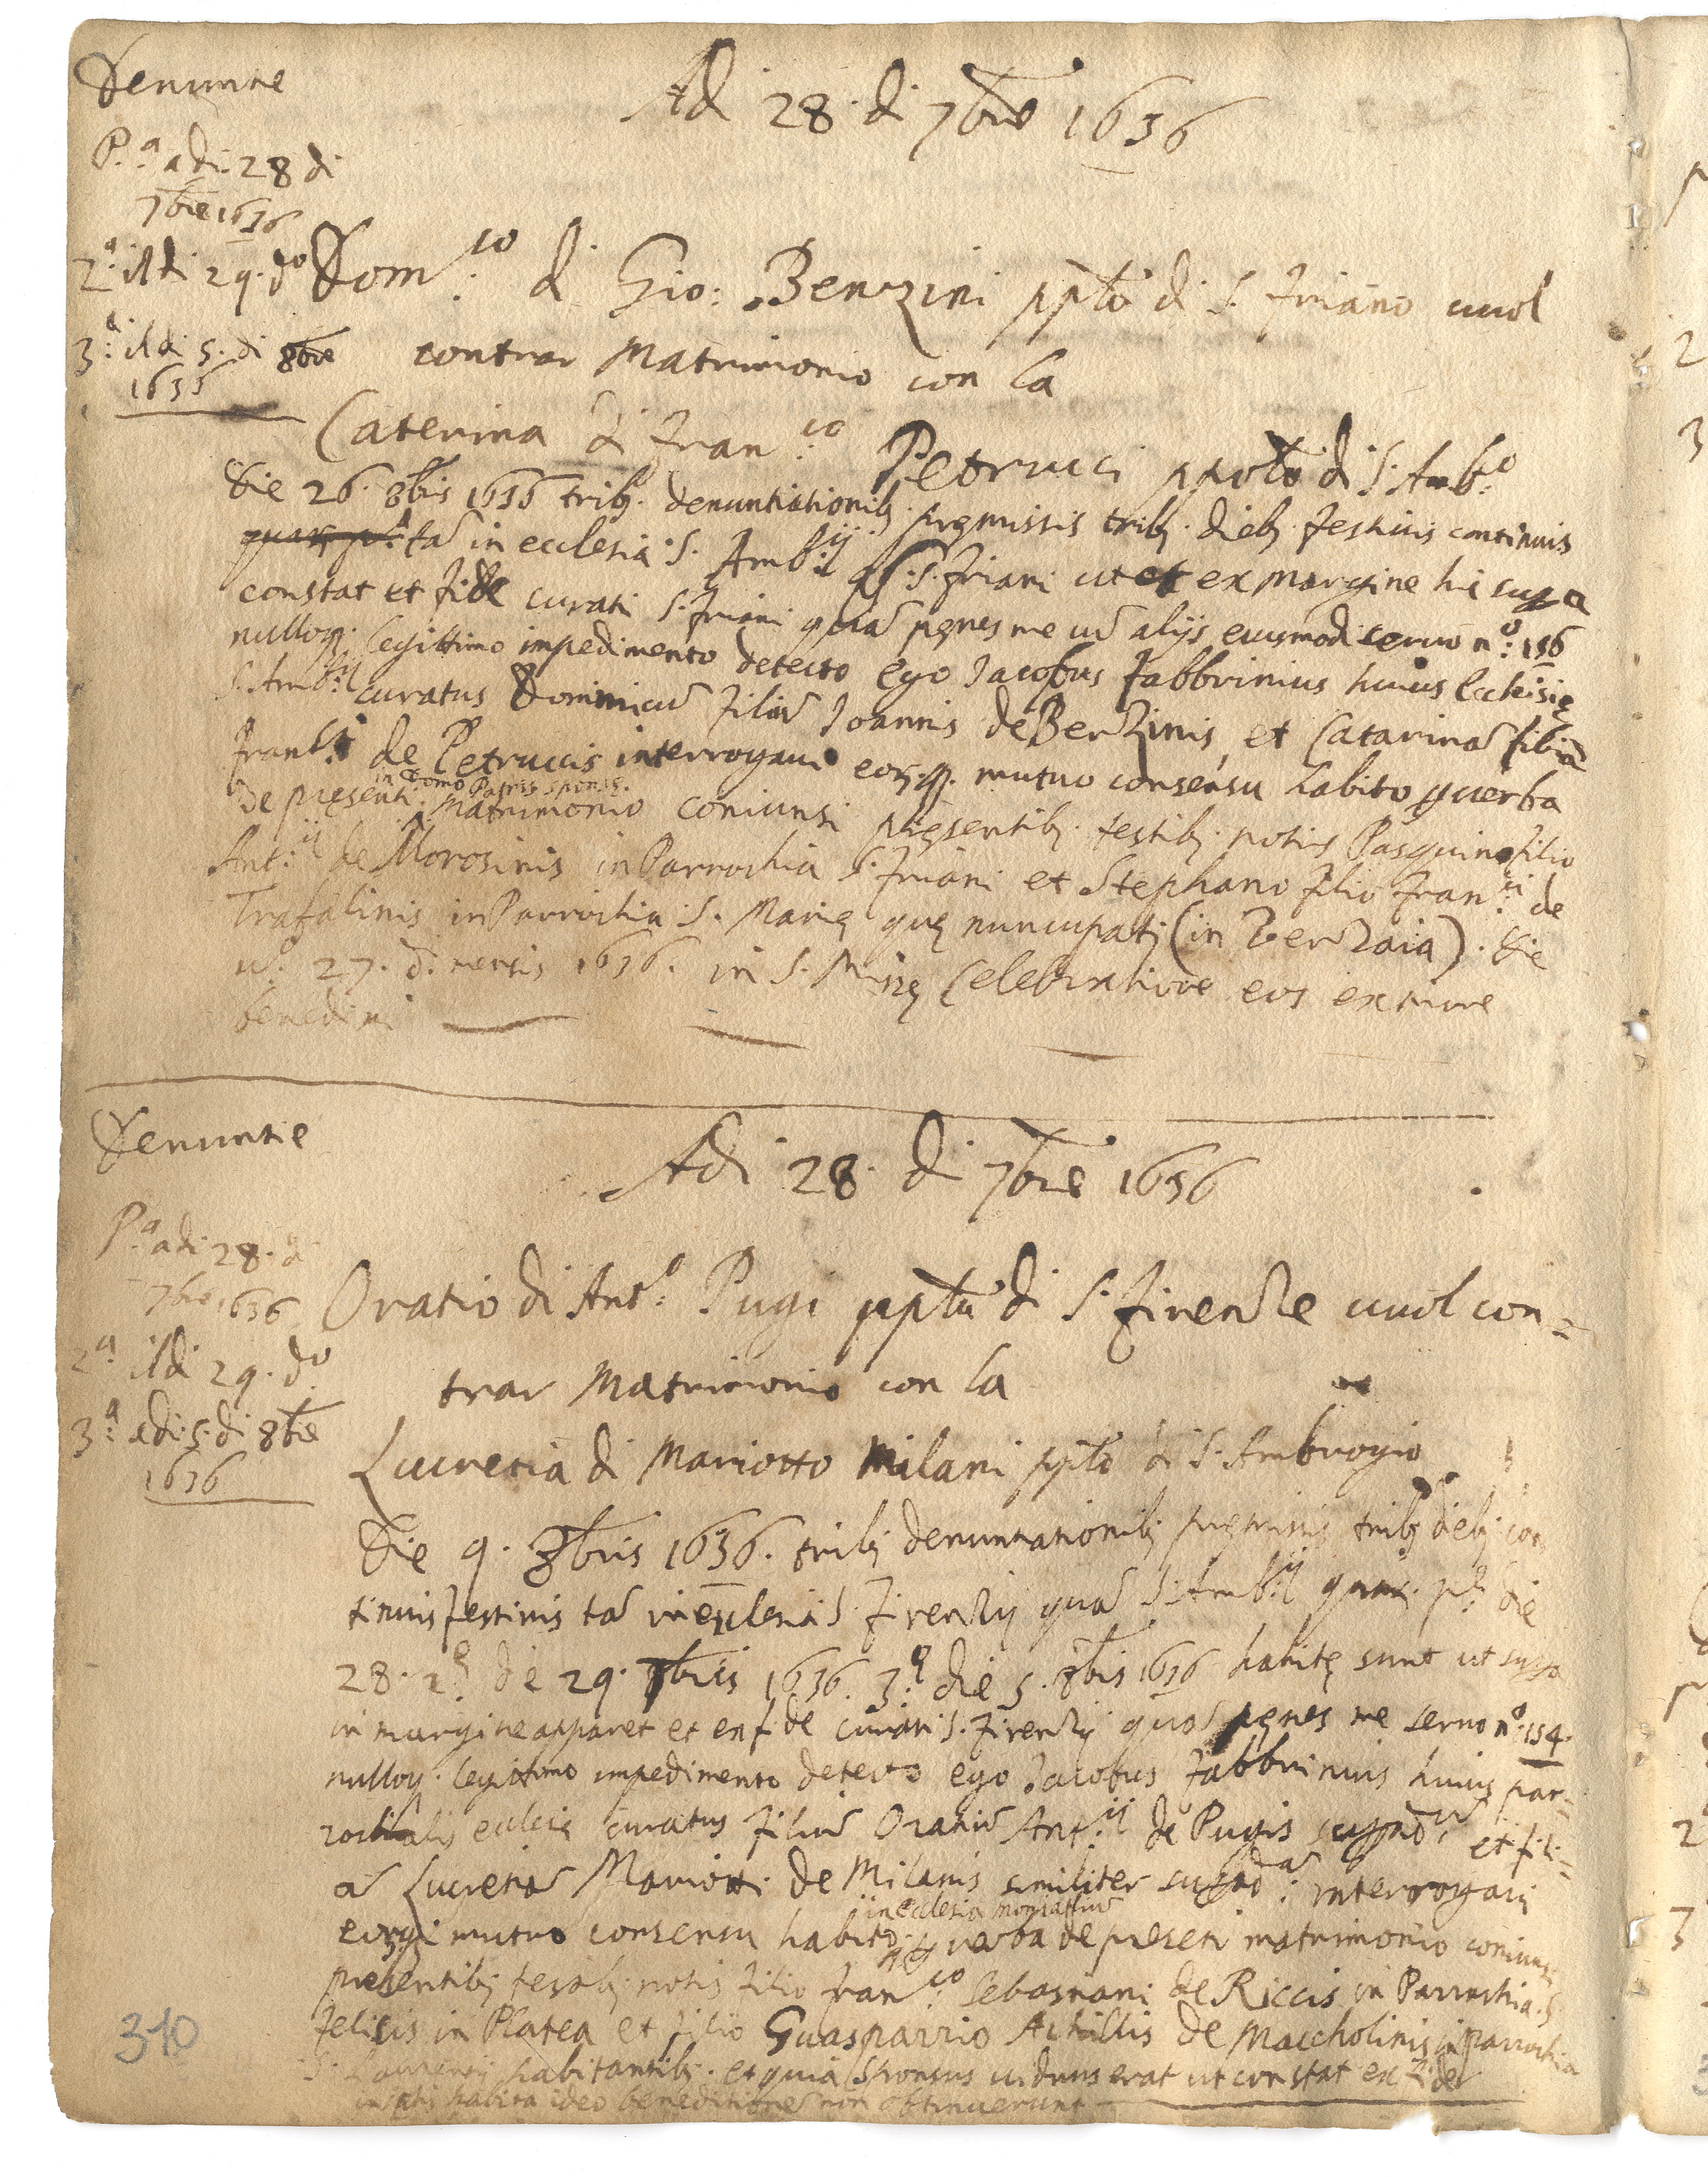 Denuntie
Adi 28. di 7bre 1636
P.a adi. 28 di
7bre 1636
2.a il di 29. do
3.a il di 5. di 8bre
1636
Dom.co di Gio: Benzini ppto di S. Friano vuol
contrar Matrimonio con la
Caterina di Fran.co Petrucci ppolo di S. Amb.o
Die 26. 8bris 1636 trib. denuntiationib. premissis trib. dieb. festivis continuis
tā in ecclesia S. Amb.ij q S. Friani ut et ex margine hic supra
constat et fide curati S. Friani quā penes me cū alijs eiusmodi servo n.o 156
nulloq. legittimo impedimento detecto ego Jacobus Fabbrinius huius Ecclesię
S. Amb.ij curatus Dominicū filiū Joannis de Benzinis, et Catarinā filiā
Fran.ci de Petruccis interrogavi eorq. mutuo consensu habito p verba
in domo Patris sponsę.
de pręsenti Matrimonio coniunsi pręsentib. testib. notis Pasquino filio
Ant.ij de Morosinis in Parrochia S. Friani et Stephano filio Fran.ci de
Trafalinis in Parrochia S. Marię quę nuncupatr (in Verzaia). Die
v.o 27. d. mensis 1636. in S. Missę Celebratione eos ex more
benedixi
Denuntie
Adi 28. di 7bre 1636
P.a adi 28. di
7bre 1636
2.a il di 29. do
3.a adi. 5. di 8bre
1636
Oratio di Ant.o Pugi pptō di S. Firenze vuol con=
trar Matrimonio con la
Lucretia di Mariotto Milani ppto di S. Ambrogio
Die 9. 8bris 1636. trib denuntiationib premissis trib dieb con
tinuis festivis tā in ecclesia S. Firenzij quā S. Amb.ij quar. p.a die
28. 2.a die 29. 7bris 1636. 3.a die 5. 8bis 1636 habitę sunt ut supra
in margine apparet et ex fide curati S. Firenzij quā penes me servo n.o 154.
nulloq. legittimo impedimento detecto ego Jacobus Fabbrinius huius par=
rochialis ecclesię curatus filiū Oratiū Ant.ij de Pugis suppdū et fili=
ā Lucretiā Mariotti de Milanis similiter suppdā interrogavi
in ecclesia
eorq mutuo consensu habito p verba de presenti matrimonio coniunsi
presentib testib. notis filio Fran.co Sebastiani de Riccis in Parrochia S.
Felicis in Platea et filio Guasparrio Achillis de Maccholinis in parrochia
S. Laurentij habitantib. et quia Sponsus viduus erat ut constat ex fide
habita ideo beneditionē non obtinuerunt
310